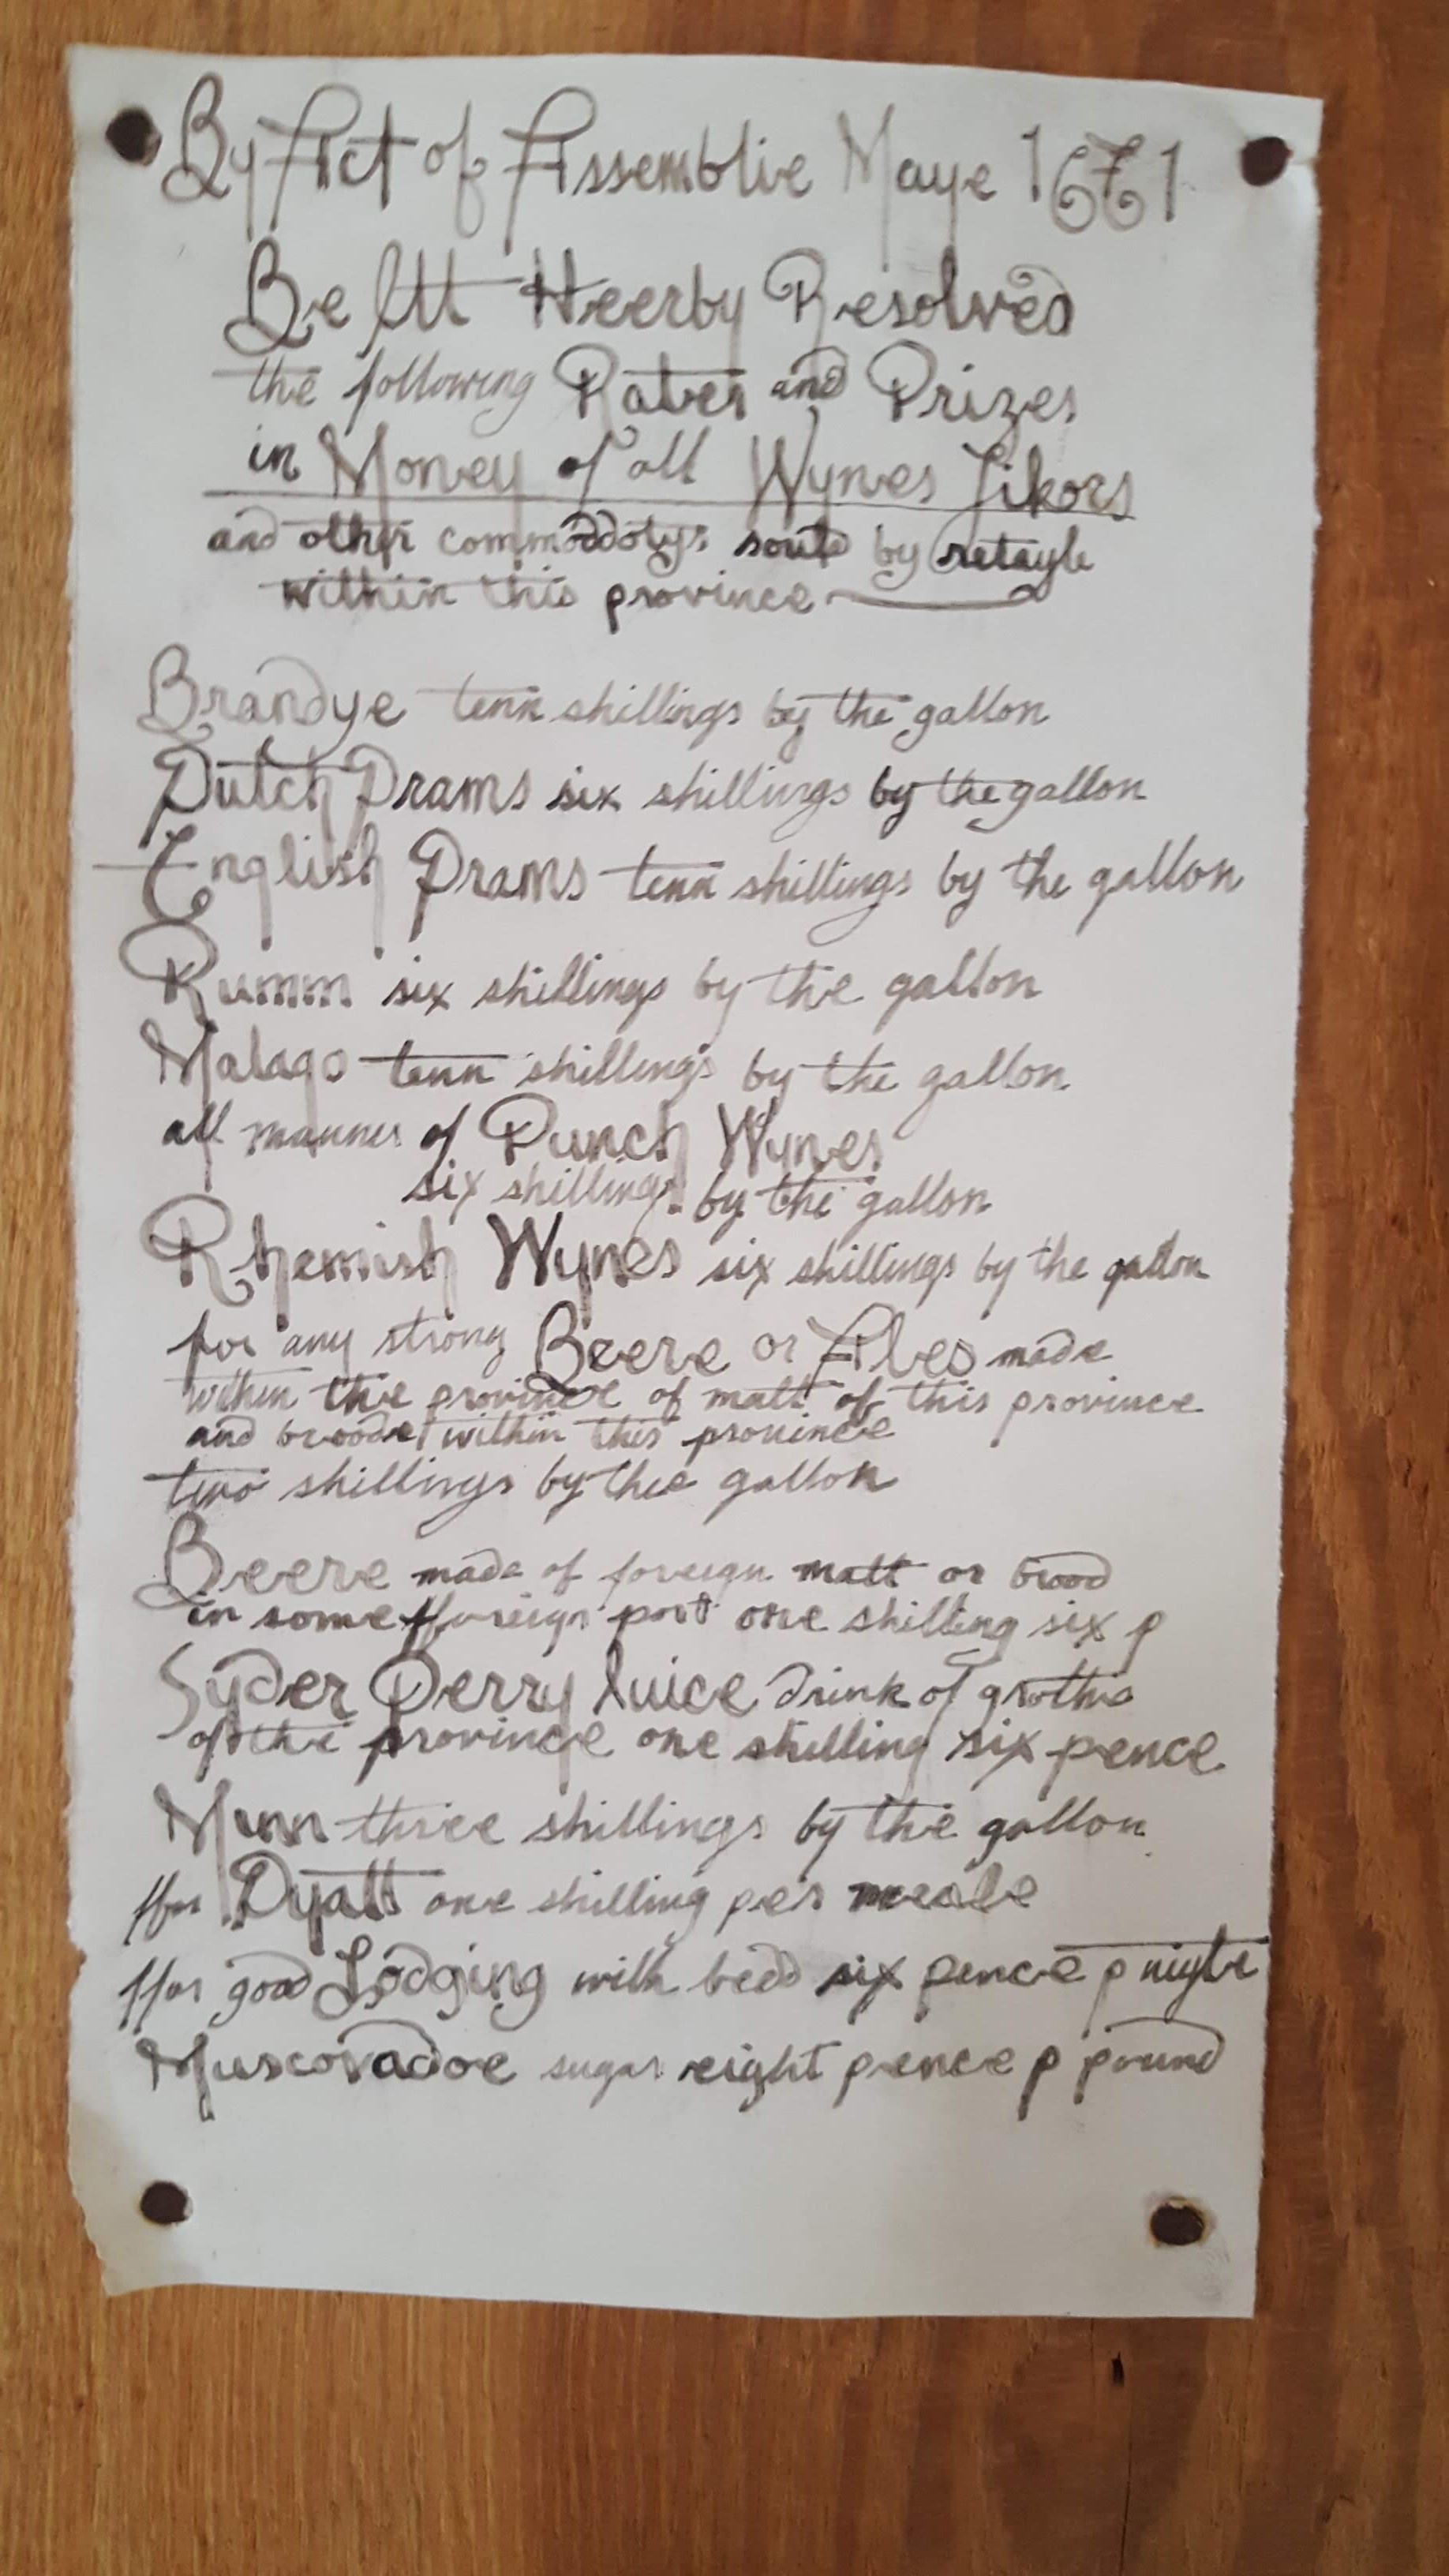 By Act of Assemblie Maye 1661
Be Itt Heerby Resolved
the following Rates and Prizes
in Money of all Wynes Likors
and other commoddotys sould by retayle
within this province
Brandye tenn shillings by the gallon
Dutch Drams six shillings by the gallon
English Drams tenn shillings by the gallon
Rumm six shillings by the gallon
Malago tenn shillings by the gallon
all manner of Punch Wynes
six shillings by the gallon
Rhemish Wynes six shillings by the gallon
for any strong Beere or Ales made
within the province of malt of this province
and within this province
two shillings by thee gallon
Beere made of foreign malt or
in some fforeign port one shilling six p
Syder Perry Juice drink of grothe
of the province one shilling six pence
Mum three shillings by the gallon
ffor Dyatt one shilling per meale
ffor good Lodging with bedd six pence p night
Muscovadoe sugar eight pence p pound